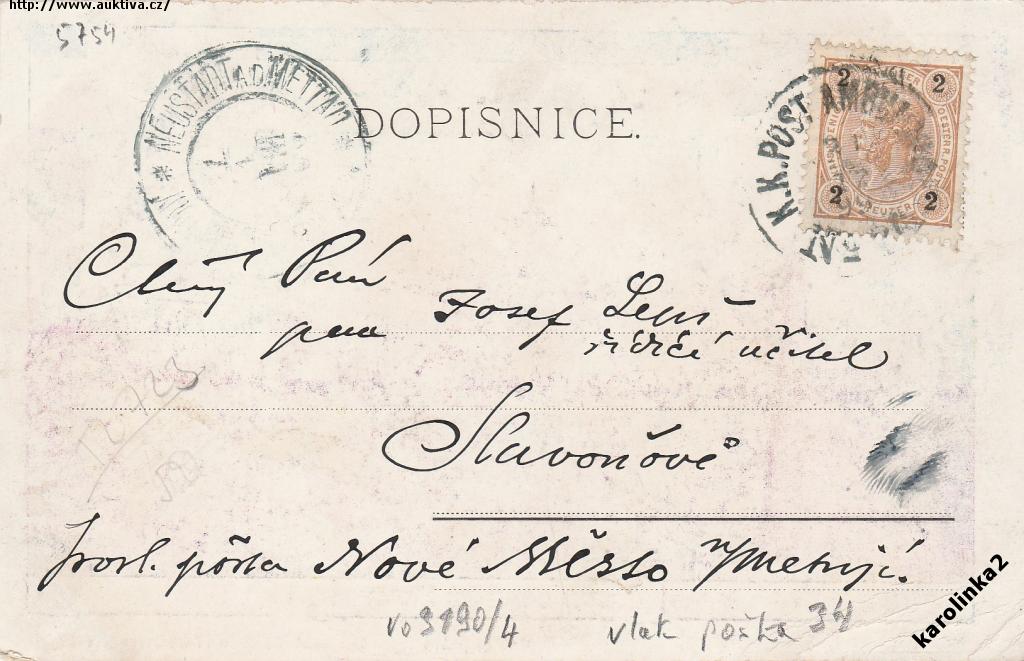 http://www.auktiva.cz/
5754
NEUSTADT A.D. METTAU
DOPISNICE.
K.K. POST AMBUL
2 2
2 2
Pán
pan Josef
řídící učitel
Slavoňově
pošta Nové Město n/Metují.
vo3190/4 vlak pošta 34
karolinka2